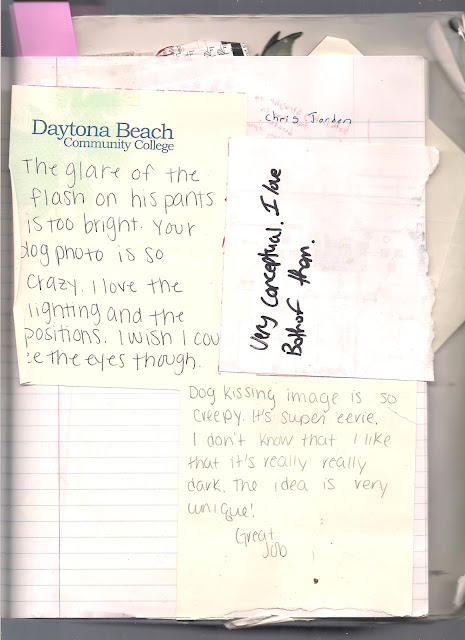 Chris Jorden
Daytona Beach
Community College
The glare of the
flash on his pants
is too bright. Your
dog photo is so
crazy. I love the
lighting and the
positions. I wish I cou
ee the eyes though.
Very conceptual. I love
Both of them.
Dog kissing image is so
creepy. It's super eerie.
I don't know that I like
that it's really really
dark. The idea is very
unique!
Great
Job